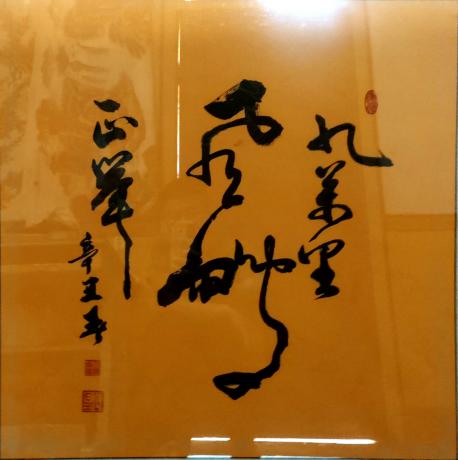 九萬里
風鵬
正舉
辛丑春